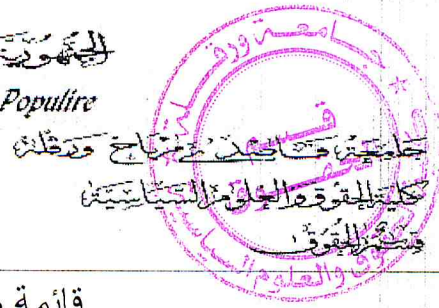 الجمهورية
Populire
جامعة قاصدي مرباح ورقلة
كلية الحقوق والعلوم السياسية
قسم الحقوق
جامعة ورقلة
قسم
الحقوق والعلوم السياسية
قائمة